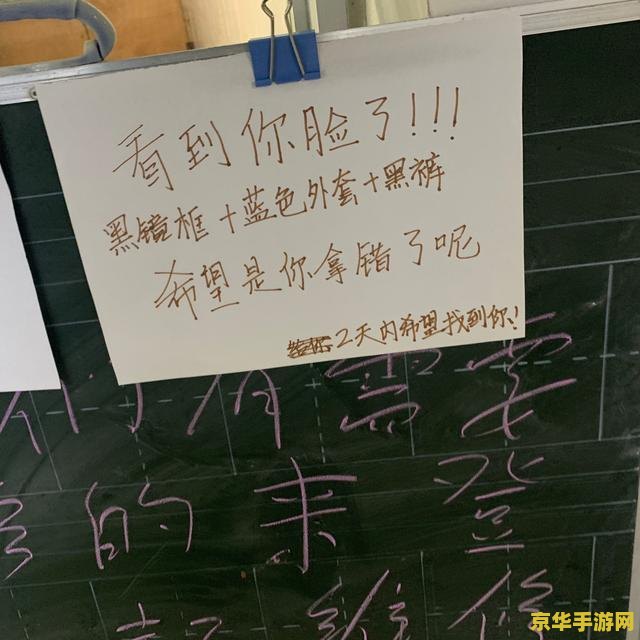 看到你脸了!!!
黑镜框+蓝色外套+黑裤
希望是你拿错了呢
2天内希望找到你!
们有需要
的来登
京华手游网